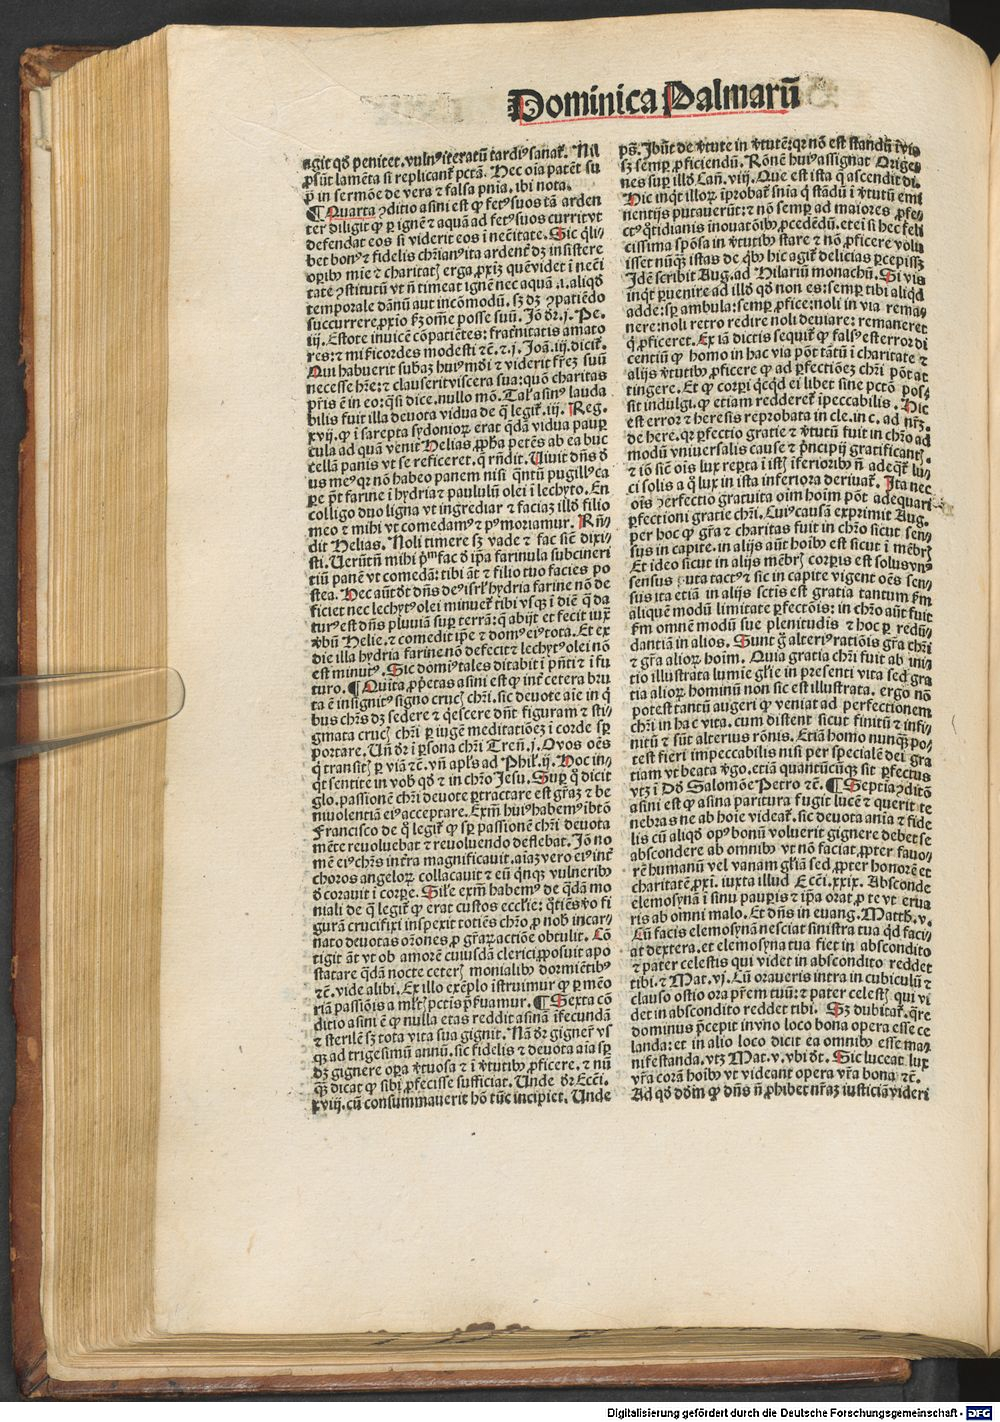 Dominica Palmarū
agit qđ penitet. vulnꝰ iteratū tardiꝰ sanat᷒. Nil
ꝓsūt lamēta si replicant᷒ pctā. Hec oīa patēt su
ꝑ in sermōe de vera ⁊ falsa pnīa. ibi nota.
¶ Quarta ꝯditio asini est ꝙ fetꝰ suos tā arden
ter diligit ꝙ ꝑ ignē ⁊ aquā ad fetꝰ suos currit vt
defendat eos si viderit eos ī necītate. Sic q̄li-
bet bonꝰ ⁊ fidelis chr̄ianꝰ ita ardent᷒ dꝫ insistere
oꝑibꝰ mīe ⁊ charitatꝭ erga ꝓxīꝫ quē videt ī necī
tate ꝯstitutū vt ñ timeat ignē nec aquā .i. aliqđ
temporale dānū aut incōmodū. sꝫ dꝫ ꝯpatiēdo
succurrere ꝓxīo ẜꝫ om̄e posse suū. Jō dr̄ .j. Pe.
iij. Estote invicē cōpatiētes: frat᷒nitatis amato
res: ⁊ mīẜicordes modesti ⁊c̄. ⁊ .j. Joā. iij. dicit᷒.
Qui habuerit subaꝫ huiꝰ mūdi ⁊ viderit fr̄eꝫ suū
necesse hr̄e: ⁊ clauserit viscera sua: quō charitas
pr̄is ē in eo: q̄si dice. nullo mō. Tal᷒ asinꝰ lauda
bilis fuit illa devota vidua de q̄ legit᷒ .iij. Reg.
xvij. ꝙ ī sarepta sydonioꝝ erat q̄dā vidua pauꝑ
cula ad quam venit Helias ꝓpha petēs ab ea buc
cellā panis vt se reficeret. q̄ rn̄dit. Vivit dn̄s đ
us meꝰ qꝛ nō habeo panem nisi q̄ntū pugillꝰ ca
ꝑe pōt farine ī hydria ⁊ paululū olei ī lechyto. En
colligo duo ligna vt ingrediar ⁊ faciaꝫ illđ filio
meo ⁊ mihi vt comedamꝰ ⁊ pꝰ moriamur. Rn̄-
dit Helias. Noli timere sꝫ vade ⁊ fac sic̄ dixi-
sti. Verūtn̄ mihi p̄ᵐ fac đ ip̄a farinula subcineri
tiū panē vt comedā: tibi āt ⁊ filio tuo facies po
stea. Hec aūt dt̄ dn̄s deꝰ isrl̄ hydria farine nō de
ficiet nec lechytꝰ olei minuet᷒ tibi vsqꝫ ī diē q̄ da
turꝰ est dn̄s pluviā suꝑ terrā: q̄ abijt ⁊ fecit iuxͣ
v̄bū Helie. ⁊ comedit ip̄e ⁊ domꝰ eiꝰ tota. Et ex
die illa hydria farine nō defecit ⁊ lechytꝰ olei nō
est minutꝰ. Sic domīꝰ tales ditabit ī pn̄ti ⁊ ī fu
turo. ¶ Quīta ꝓp̄etas asini est ꝙ int᷒ cetera bru
ta ē insignitꝰ signo crucꝭ chr̄i. sic devote aīe in q̄
bus chr̄s dꝫ sedere ⁊ q̄escere dn̄t figuram ⁊ sti-
gmata crucꝭ chr̄i ꝑ iugē meditatiōeꝫ ī corde sꝑ
portare. Un̄ dr̄ ī ꝑsona chr̄i Tren̄. j. O vos oēs
q̄ transitꝭ ꝑ viā ⁊c̄. vn̄ apl̄s ad Phil᷒. ij. Hoc in-
q̄t sentite in vob̄ qđ ⁊ in chr̄o Jesu. Suꝑ q̄ dicit
glo. passionē chr̄i devote ꝑtractare est gr̄aꝫ ⁊ be
nivolentiā eiꝰ acceptare. Exm̄ huiꝰ habemꝰ ī btō
Francisco de q̄ legit᷒ ꝙ sꝑ passionē chr̄i devota
mēte revoluebat ⁊ revoluendo deflebat. Jō no
mē eiꝰ chr̄s int᷒ra magnificavit. aīaꝫ vero eiꝰ int᷒
choros angeloꝝ collacavit ⁊ eū q̄nqꝫ vulneribꝰ
đcoravit ī corꝑe. Sil᷒e exm̄ habemꝰ de q̄dā mo
niali de q̄ legit᷒ ꝙ erat custos eccl̄ie: q̄tiēs v̄o fi
gurā crucifixi inspexit totiēs chr̄o ꝓ nob̄ incar-
nato devotas or̄ones ꝓ gr̄aꝝ actiōe obtulit. Cō
tigit āt vt ob amorē cuiusdā clerici ꝓposuit apo
statare q̄dā nocte ceterꝭ monialibꝰ dormiētibꝰ
⁊c̄. vide alibi. Ex illo exēplo īstruimur ꝙ ꝑ mēo
riā passiōis a ml̄tꝭ pctis p̄ẜvamur. ¶ Sexta cō
ditio asini ē ꝙ nulla etas reddit asinā īfecundā
⁊ sterilē sꝫ tota vita sua gignit. Nā dr̄ gigner᷒ vs
qꝫ ad trigesimū annū. sic fidelis ⁊ devota aīa sꝑ
dꝫ gignere oꝑa v̄tuosa ⁊ ī v̄tutibꝰ ꝓficere. ⁊ nū
q̄ꝫ dicat ꝙ sibi ꝓfecisse sufficiat. Unde dr̄ Ecci.
xviij. cū consummaverit hō tūc incipiet. Unde
ps̄. Jbūt de v̄tute in v̄tutē: qꝛ nō est standū ī via
sꝫ semꝑ ꝓficiendū. Rōnē huiꝰ assignat Orige-
nes suꝑ illđ Can̄. viij. Que est ista q̄ ascendit ⁊c̄.
Hic inqt illoꝝ īprobat᷒ sn̄ia q̄ stādū ī v̄tutū emi
nentijs putaverūt: ⁊ nō semꝑ ad maiores ꝓfe-
ctꝰ q̄tidianis inovatōibꝰ ꝓcedēdū. et ei si hec feli
cissima spōsa in v̄tutibꝰ stare ⁊ nō ꝓficere volu
isset nūq̄ꝫ istas de qbꝰ hic agit᷒ delicias ꝑcepissꝫ
Jdē scribit Aug. ad Hilariū monachū. Si vis
inqt ꝑvenire ad illđ qđ non es: semꝑ tibi aliqđ
adde: sꝑ ambula: semꝑ ꝓfice: noli in via rema-
nere: noli retro redire noli deviare: remaneret
q̄ ꝓficeret. Ex iā dictis sequit᷒ ꝙ falsꝰ est error di
centiū ꝙ homo in hac via pōt tātū ī charitate ⁊
alijs v̄tutibꝰ ꝓficere ꝙ ad ꝑfectiōeꝫ chr̄i pōt at
tingere. Et ꝙ corꝑi q̄cqđ ei libet sine pctō pos-
sit indulgi. ꝙ etiam redderet᷒ īpeccabilis. Hic
est error ⁊ heresis reprobata in cle. in c. ad nr̄ꝫ.
de here. qꝛ ꝑfectio gratie ⁊ v̄tutū fuit in chr̄o ad
modū vniversalis cause ⁊ p̄ncipij gratificantꝭ.
⁊ iō sic̄ oīs lux reꝑta ī istꝭ īferioribꝰ ñ adeq̄t᷒ lu-
ci solis a q̄ lux in ista inferiora derivat᷒. Jta nec
oīs ꝑerfectio gratuita oīm hoīm pōt adequari
ꝑfectioni gratie chr̄i. Cuiꝰ causā exprimit Aug.
per hoc ꝙ gr̄a ⁊ charitas fuit in chr̄o sicut sen-
sus in capite. in alijs aūt hoībꝰ est sicut ī mēbrꝭ
Et ideo sicut in alijs mēbrꝭ corꝑis est solus vnꝰ
sensus puta tactꝰ ⁊ sic in capite vigent oēs sen-
sus ita etiā in alijs sctis est gratia tantum ẜm
aliquē modū limitate ꝑfectōis: in chr̄o aūt fuit
ẜm omnē modū sue plenitudis ⁊ hoc ꝑ redū-
dantiā in alios. Sunt ḡ alteriꝰ ratiōis gr̄a chr̄i
⁊ gr̄a alioꝝ hoīm. Quia gratia chr̄i fuit ab ini-
tio illustrata lumīe gl̄ie in presenti vita sed gra
tia alioꝝ hominū non sic est illustrata. ergo nō
potest tantū augeri ꝙ veniat ad perfectionem
chr̄i in hac vita. cum distent sicut finitū ⁊ infi-
nitū ⁊ sūt alterius rōnis. Etiā homo nunqꝫ po-
test fieri impeccabilis nisi per specialē dei gra
tiam vt beata v̄go. etiā quantūcūqꝫ sit ꝑfectus
vtꝫ ī Dđ Salomōe Petro ⁊c̄. ¶ Septīa ꝯditō
asini est ꝙ asina paritura fugit lucē ⁊ querit te
nebras ne ab hoīe videat᷒. sic devota aīa ⁊ fide
lis cū aliqđ opꝰ bonū voluerit gignere debet se
abscondere ab omnibꝰ vt nō faciat ꝓpter favo-
rē humanū vel vanam gl̄iā sed ꝓpter honorē et
charitatē ꝓxi. iuxta illud Ecci. xxix. Absconde
elemosynā ī sinu pauꝑis ⁊ ip̄a orat ꝓ te vt erua
ris ab omni malo. Et dn̄s in evang. Matth. v.
Cū facis elemosynā nesciat sinistra tua qđ faci-
at dextera. et elemosyna tua fiet in abscondito
⁊ pater celestis qui videt in abscondito reddet
tibi. ⁊ Mat. vj. Cū oraveris intra in cubiculū ⁊
clauso ostio ora pr̄em tuū: ⁊ pater celestꝭ qui vi
det in abscondito reddet tibi. Sꝫ dubitat᷒. q̄re
dominus p̄cepit in vno loco bona opera esse ce
landa: et in alio loco dicit ea omnibꝰ esse ma-
nifestanda. vtꝫ Mat. v. vbi dt̄. Sic luceat lux
vr̄a corā hoībꝰ vt videant opera vr̄a bona ⁊c̄.
Ad qđ dōm ꝙ dn̄s ñ ꝓhibet nr̄aꝫ iusticiā videri
Digitalisierung gefördert durch die Deutsche Forschungsgemeinschaft - DFG